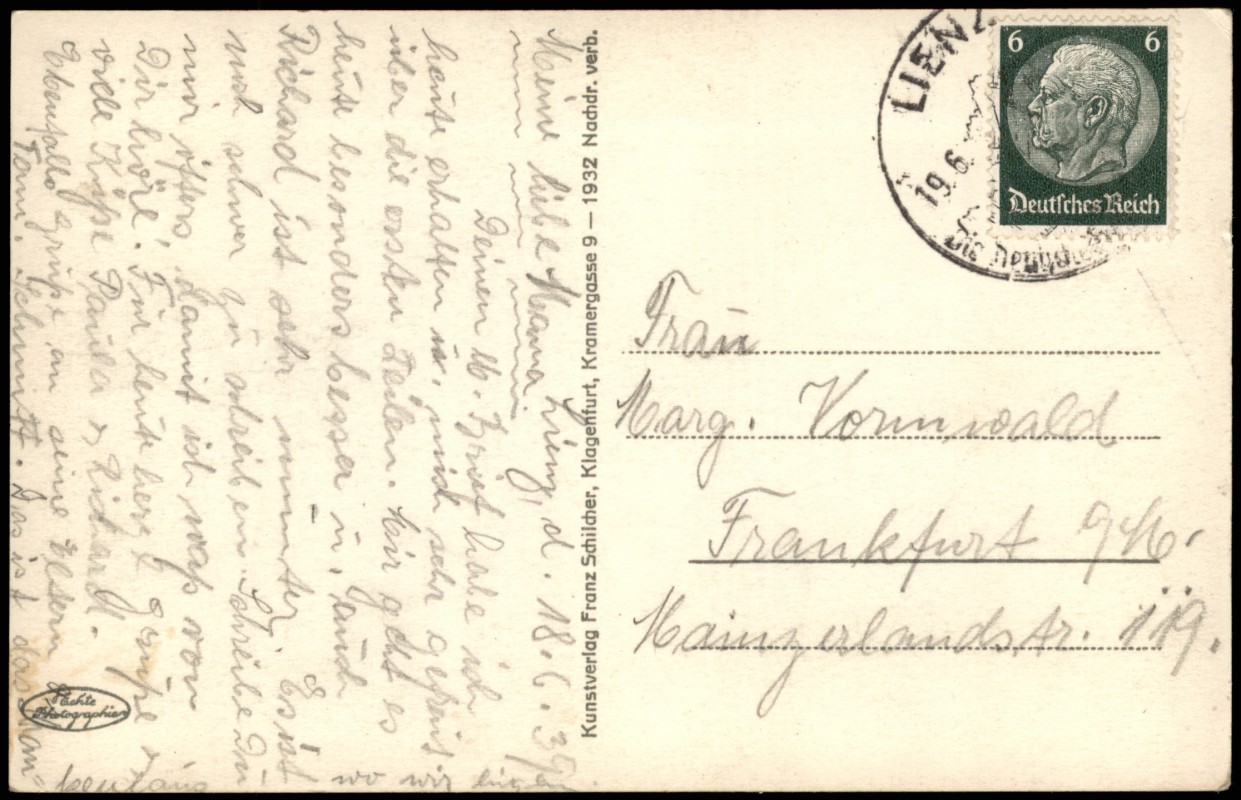 Meine liebe Mama!
Lienz, d. 18.6.39.
Deinen lb. Brief habe ich
heute erhalten u. mich sehr gefreut
über die ersten Zeilen. Mir geht es
heute besonders besser u. auch
Richard ist sehr munter. Es ist
noch schwer zu schreiben. Schreibe Du
mir öfters, damit ich was von
Dir höre. Für heute herzl. Grüße &
viele Küße Paula & Richard.
Ebenfalls Grüße an seine Eltern &
Fam. Schmitt. Das ist das
wo wir liegen
Echte
Photographie
Kunstverlag Franz Schilcher, Klagenfurt, Kramergasse 9 — 1932 Nachdr. verb.
LIENZ
19.6.
Die Deutsche
6 6
Deutsches Reich
Frau
Marg. Vormwald
Frankfurt a/M.
Mainzerlandstr. 119.